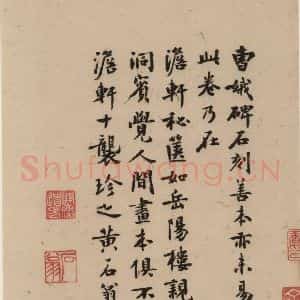 曹娥碑石刻善本亦未易
此卷乃在
澹軒秘篋如岳陽樓親
洞賓覺人間畫本俱不
澹軒十襲珍之黃石翁
Shufawang.CN